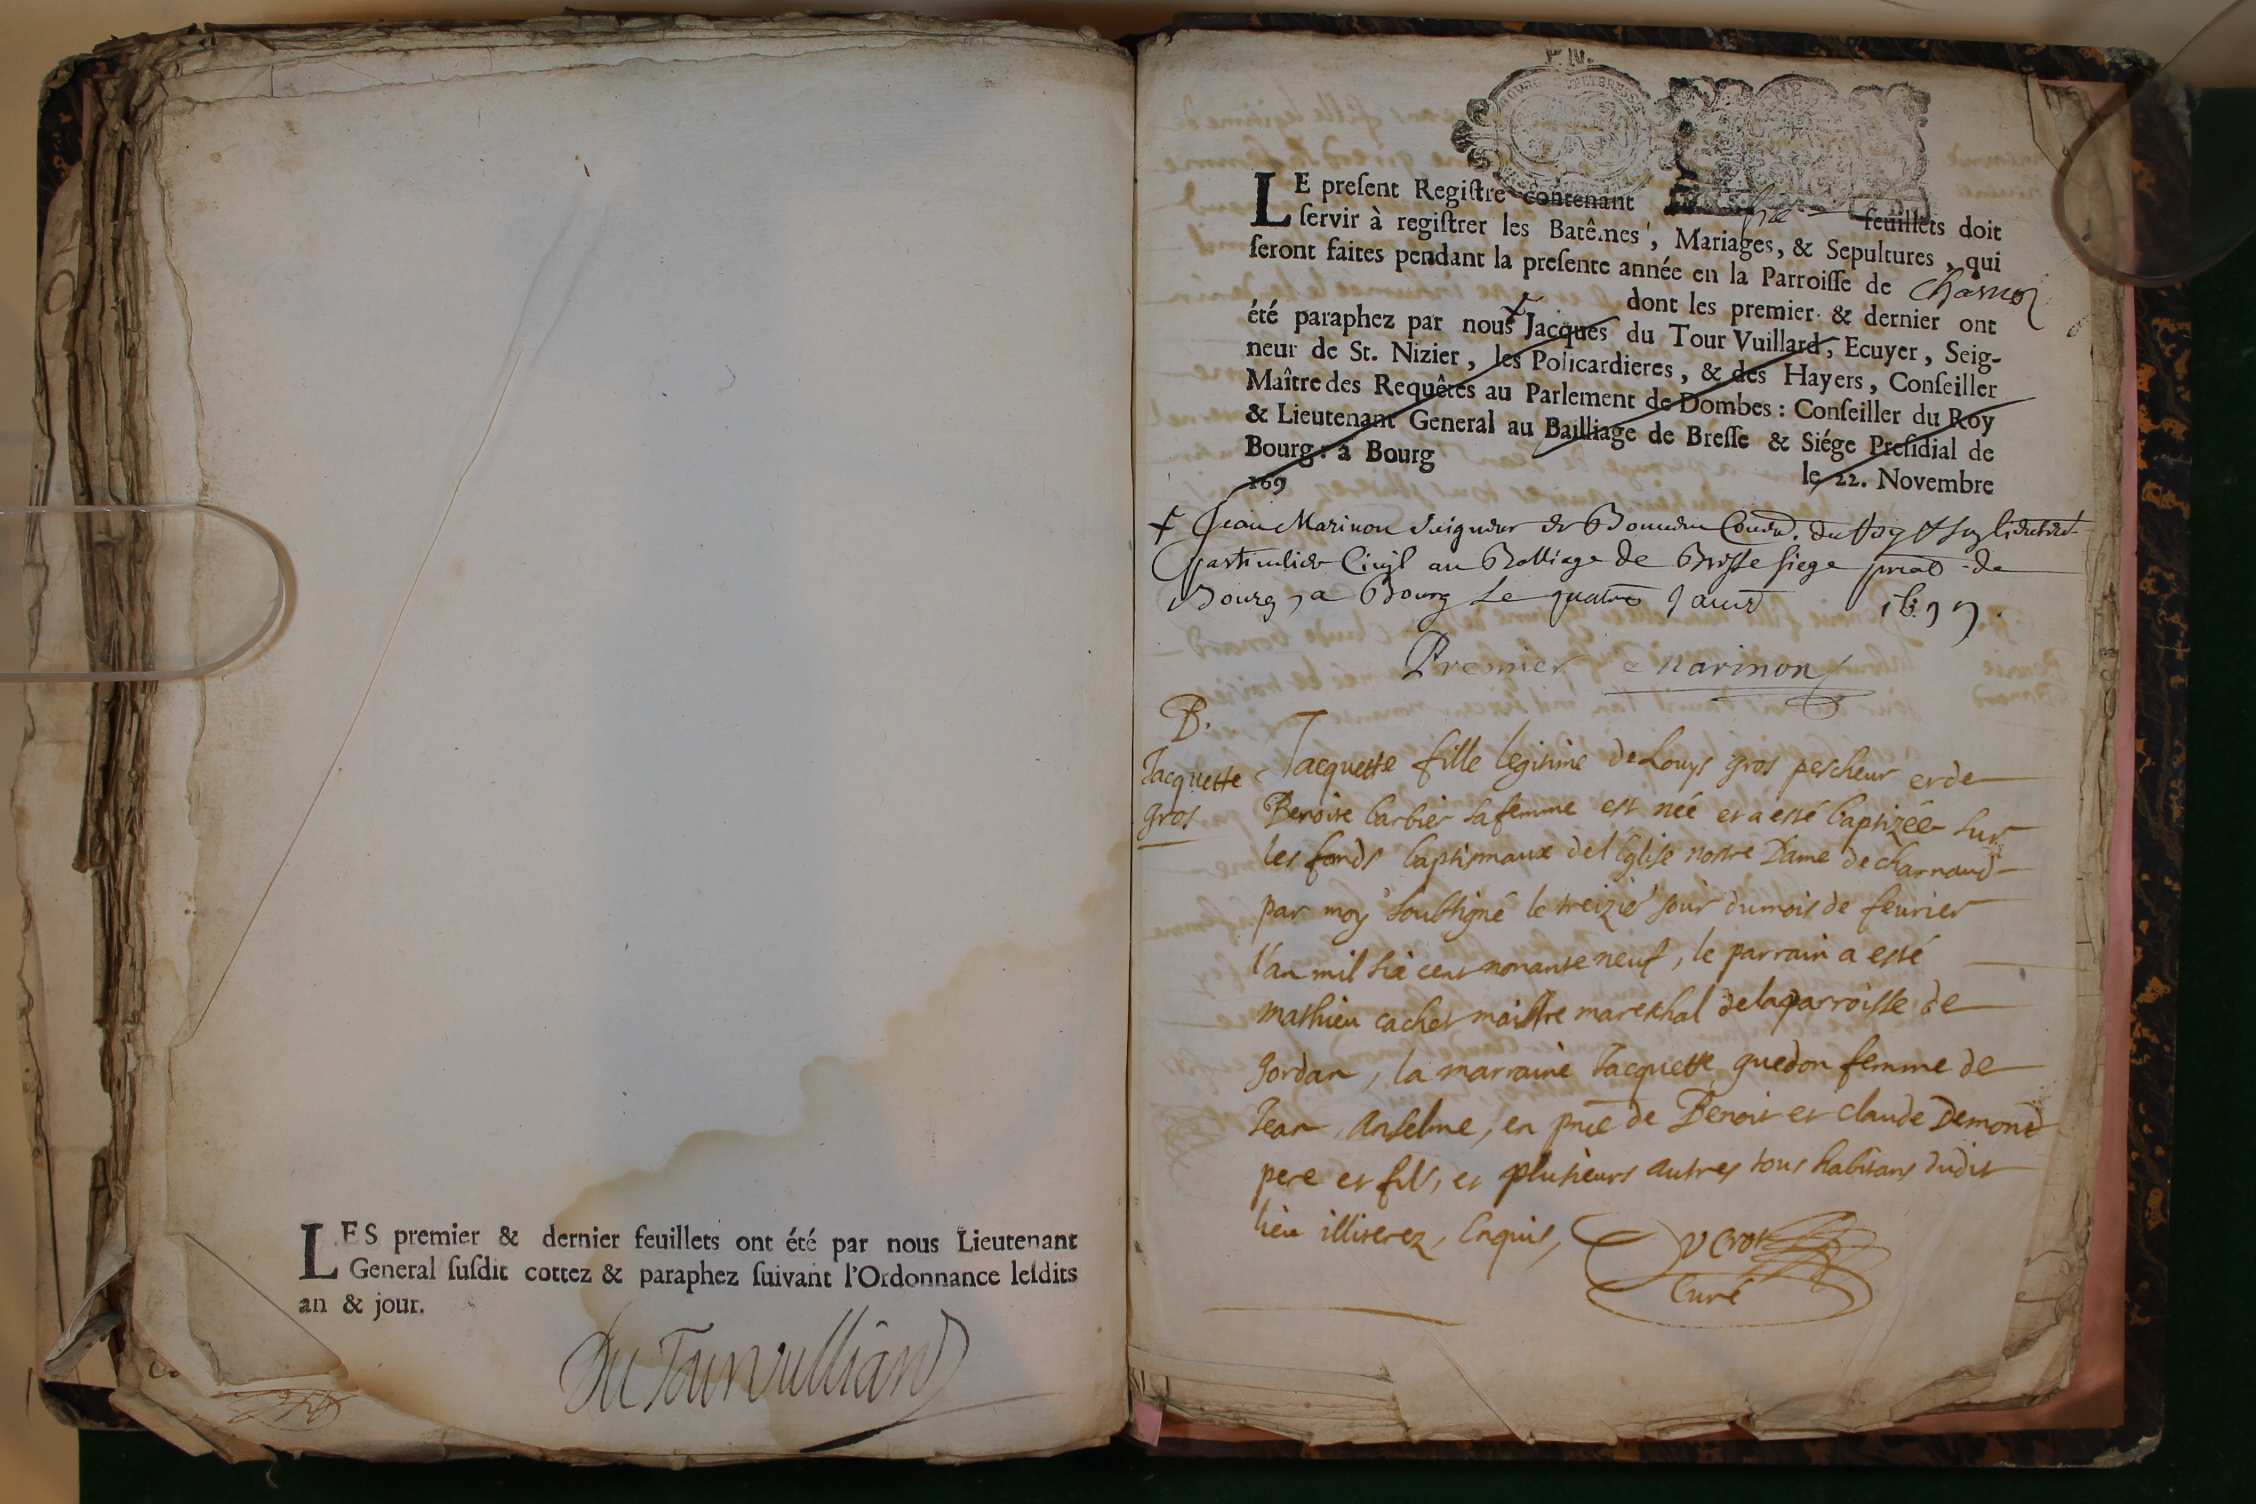 LES premier & dernier feuillets ont été par nous Lieutenant
General suſdit cottez & paraphez ſuivant l'Ordonnance leſdits
an & jour.
Du Tour Vulliard
LE preſent Regiſtre contenant six feuillets doit
ſervir à regiſtrer les Batêmes, Mariages, & Sepultures, qui
ſeront faites pendant la preſente année en la Parroiſſe de Charnoz
dont les premier & dernier ont
été paraphez par nous Jacques du Tour Vuillard, Ecuyer, Seig-
neur de St. Nizier, les Policardieres, & des Hayers, Conſeiller
Maître des Requêtes au Parlement de Dombes: Conſeiller du Roy
& Lieutenant General au Bailliage de Breſſe & Siége Preſidial de
Bourg: à Bourg le 22. Novembre
169
+ Jean Marinon Seigneur de
particulier Civil au Balliage de Bresse siege de
Bourg, a Bourg Le quatre 1699.
Premier Marinon
B.
Jacquette
gros
Jacquette fille legitime de Louys gros pescheur et de
Benoite barbier sa femme est née et a esté baptizée sur
les fonds baptismaux de l'Eglise nostre Dame de charnaud
par moy soubsigné le treizie jour du mois de feurier
l'an mil six cent nonante neuf, le parrain a esté
mathieu cachet maistre mareschal de la parroisse de
Jordan, la marraine Jacquette guedon femme de
Jean Anselme, en pnce de Benoit et claude Demond
pere et fils, et plusieurs autres tous habitans dudit
lieu illiterez, Enquis,
Curé